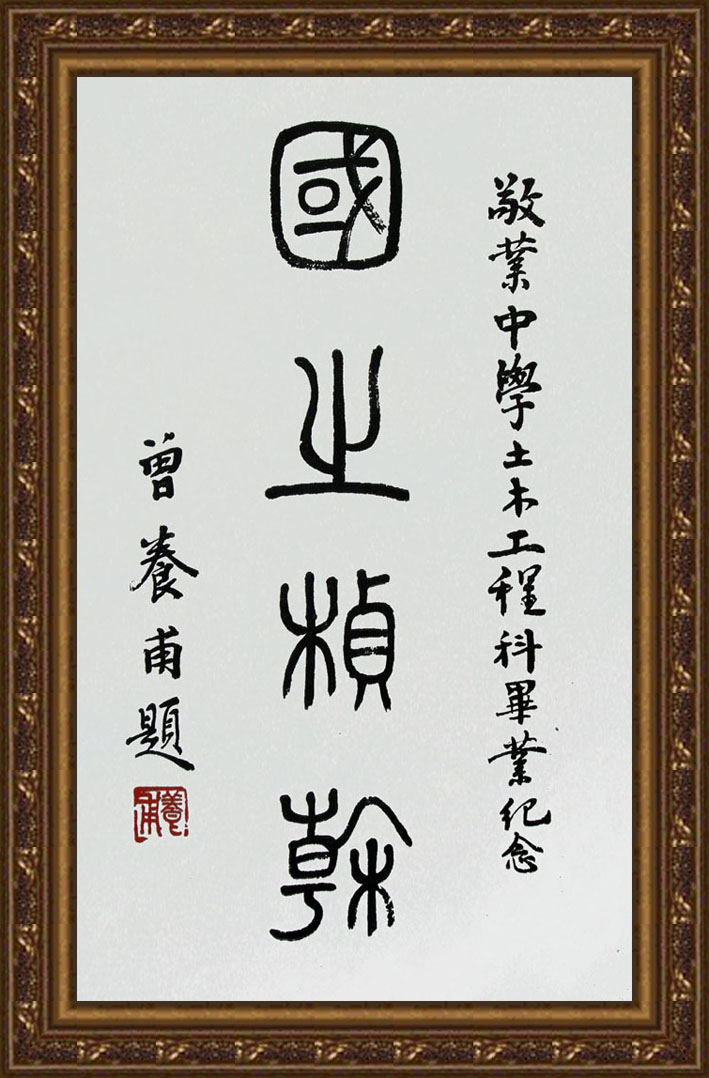 敬業中學土木工程科畢業紀念
國之楨榦
曾養甫題
養甫